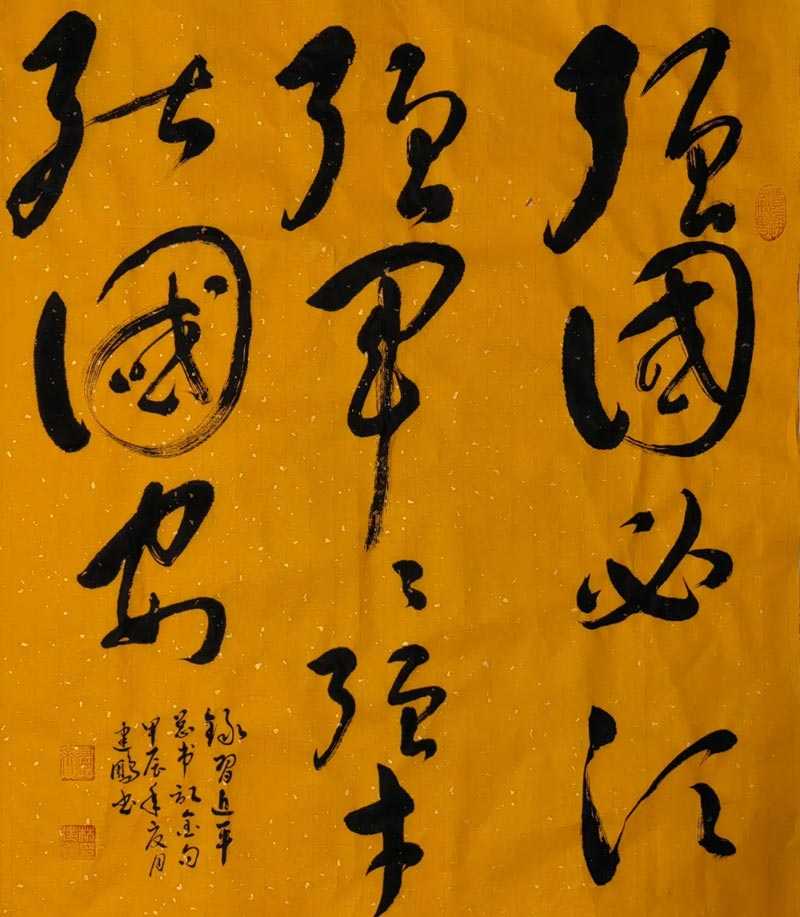 强國必须
强军〻强才
能國安
錄習近平
总书记金句
甲辰年夏月
建鹏书